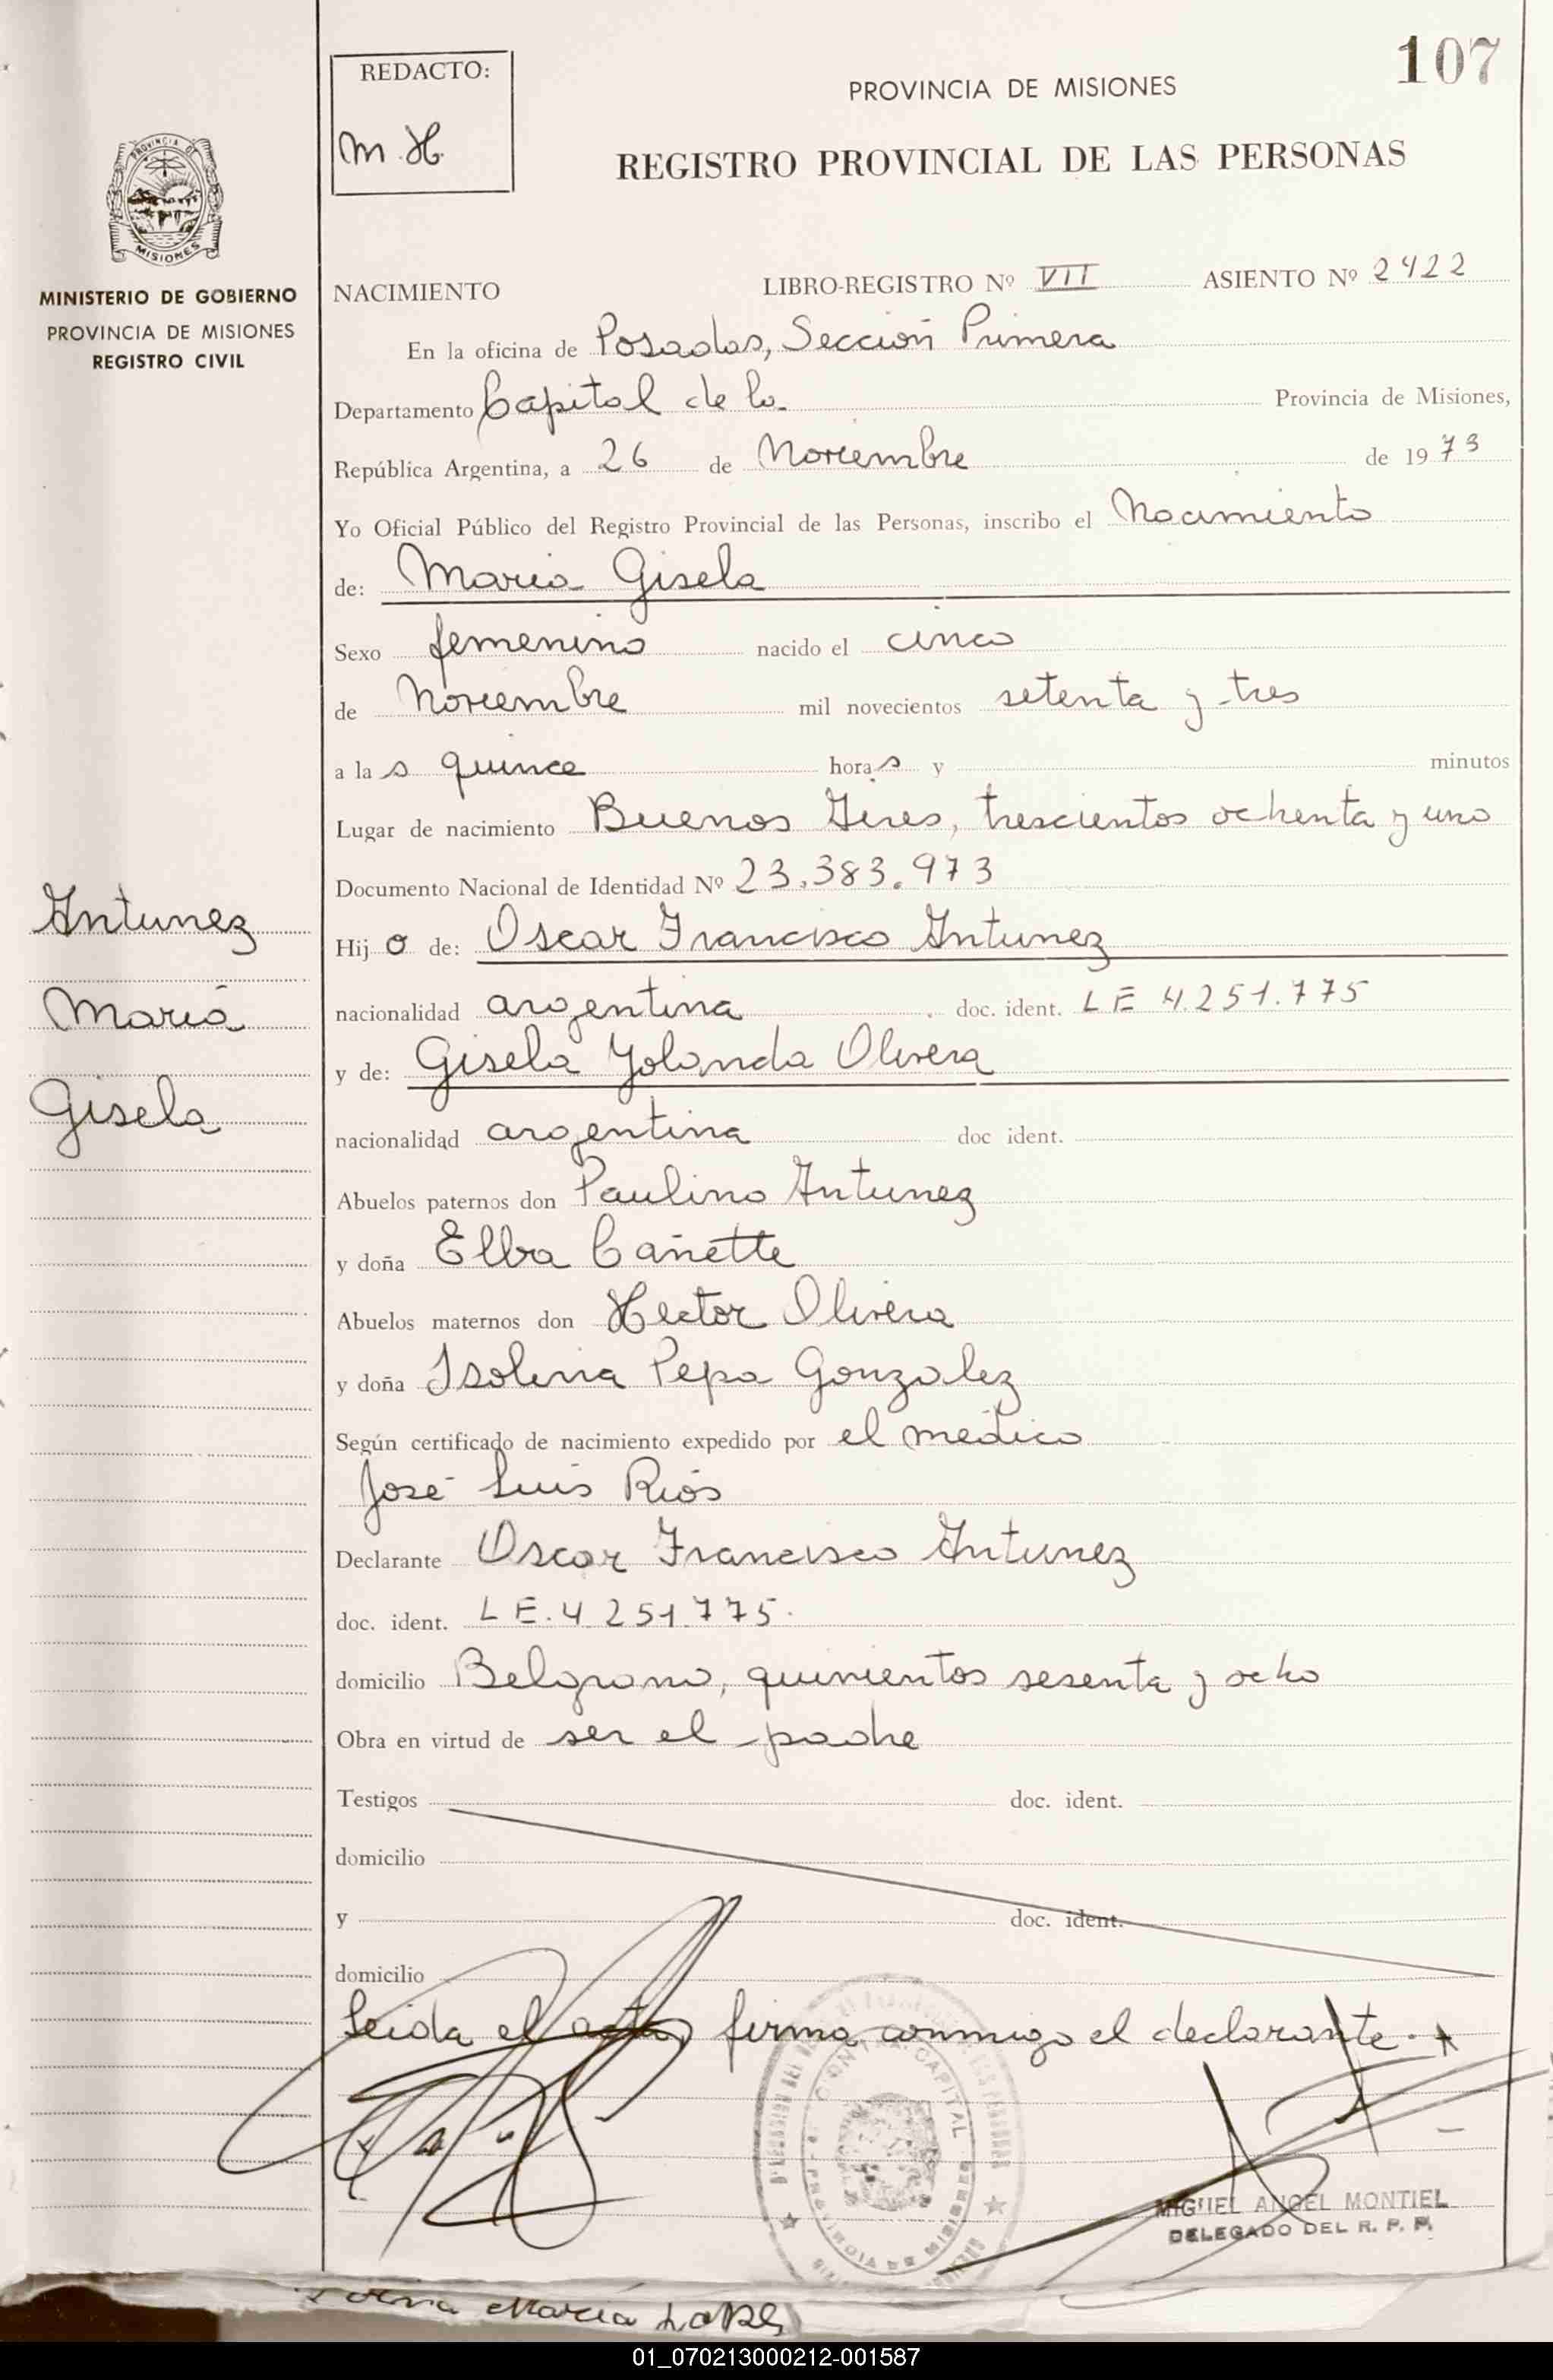 107
REDACTO:
M. H.
PROVINCIA DE MISIONES
REGISTRO PROVINCIAL DE LAS PERSONAS
PROVINCIA DE
MISIONES
MINISTERIO DE GOBIERNO
PROVINCIA DE MISIONES
REGISTRO CIVIL
NACIMIENTO LIBRO-REGISTRO Nº VII ASIENTO Nº 2422
En la oficina de Posadas, Sección Primera
Departamento Capital de la Provincia de Misiones,
República Argentina, a 26 de Noviembre de 1973
Yo Oficial Público del Registro Provincial de las Personas, inscribo el Nacimiento
de: Maria Gisela
Sexo femenino nacido el cinco
de Noviembre mil novecientos setenta y tres
a las quince horas y minutos
Lugar de nacimiento Buenos Aires, trescientos ochenta y uno
Documento Nacional de Identidad Nº 23.383.973
Antunez
Maria
Gisela
Hija de: Oscar Francisco Antunez
nacionalidad argentina doc. ident. LE 4.251.775
y de: Gisela Yolanda Olivera
nacionalidad argentina doc ident.
Abuelos paternos don Paulino Antunez
y doña Elba Cañette
Abuelos maternos don Hector Olivera
y doña Isolina Pepa Gonzalez
Según certificado de nacimiento expedido por el médico
José Luis Ríos
Declarante Oscar Francisco Antunez
doc. ident. LE. 4.251.775.
domicilio Belgrano, quinientos sesenta y ocho
Obra en virtud de ser el padre
Testigos doc. ident.
domicilio
y doc. ident.
domicilio
Leida el acta, firma conmigo el declarante.
MIGUEL ANGEL MONTIEL
DELEGADO DEL R. P. P.
Maria
01_070213000212-001587